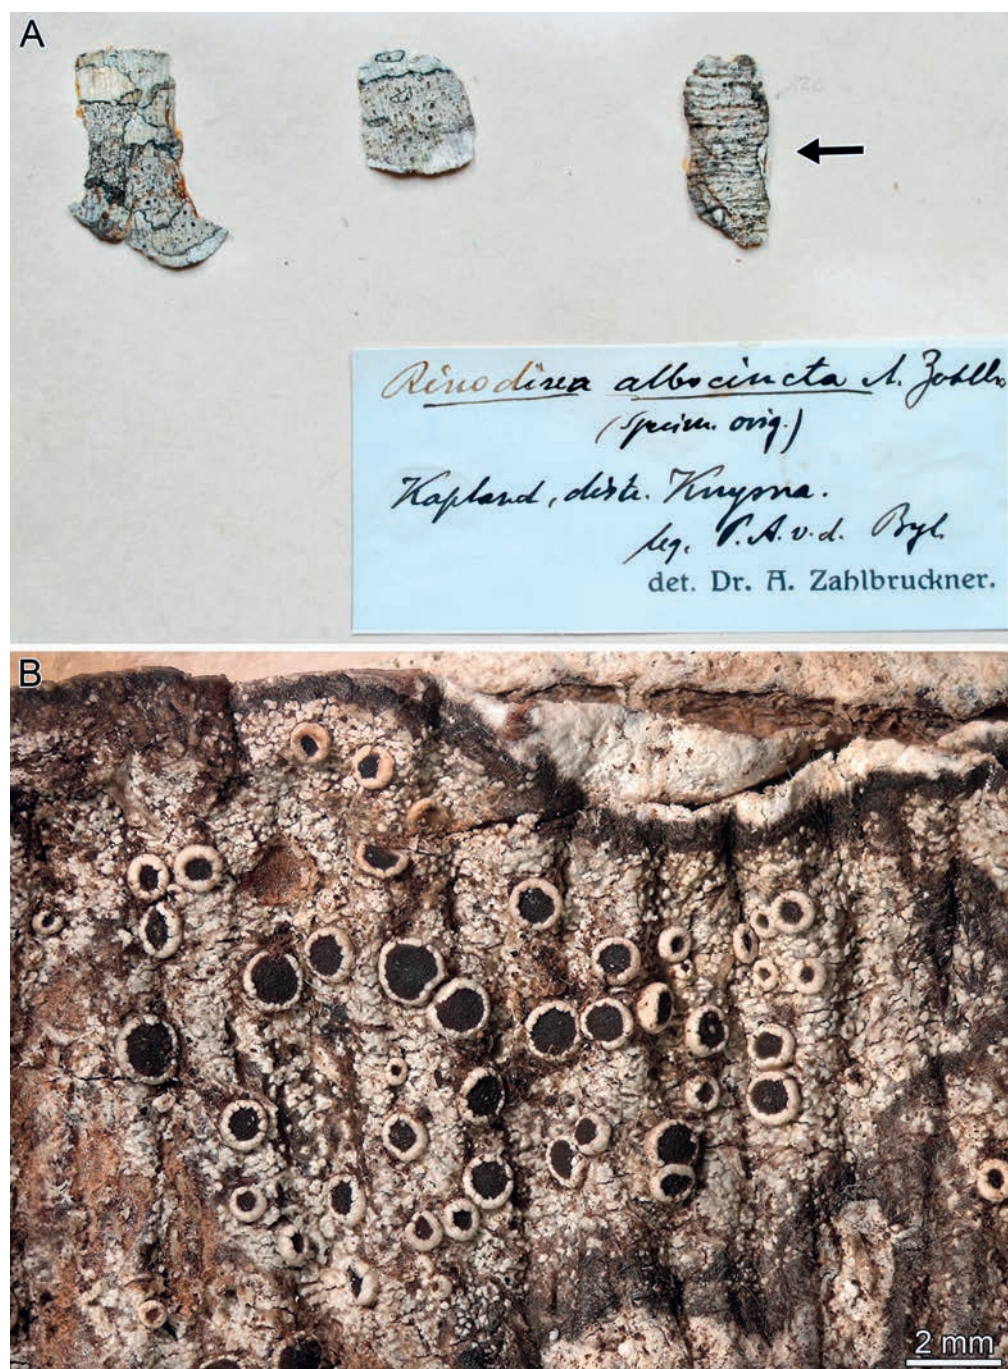 A
Rinodina albocincta A. Zahlbr
(specim. orig.)
Kapland, distr. Knysna.
leg. P.A.v.d. Byl
det. Dr. A. Zahlbruckner.
B
2 mm